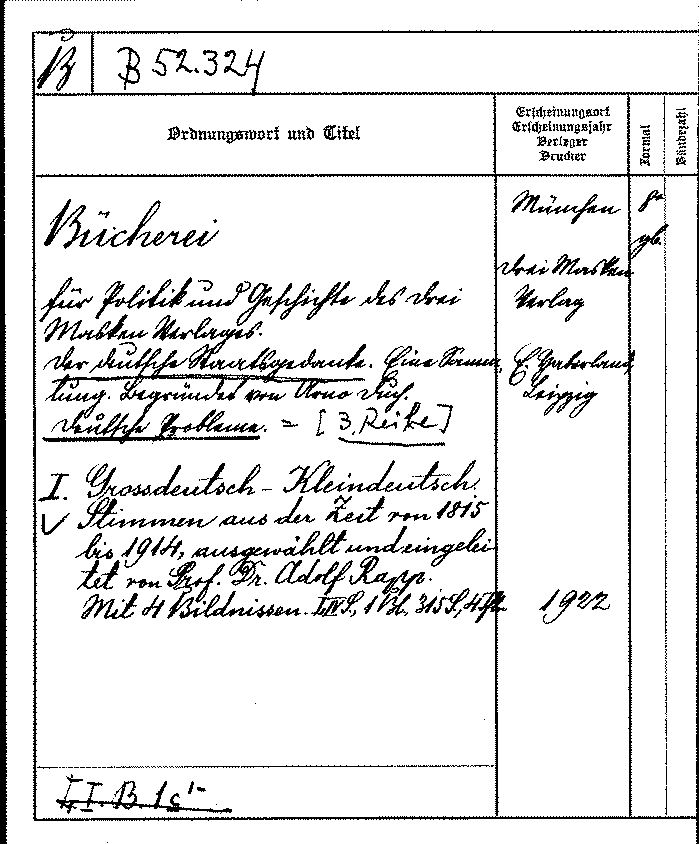 B B 52.324
Ordnungswort und Titel
Erscheinungsort
Erscheinungsjahr
Verleger
Drucker
Format
Bändezahl
Bücherei
München 8°
gb.
für Politik und Geschichte des Drei
Masken Verlages.
Drei Masken
Verlag
Der deutsche Staatsgedanke. Eine Samm-
lung. Begründet von Arno Duch.
Deutsche Probleme. = [3. Reihe]
E. Haberland,
Leipzig
I. Grossdeutsch - Kleindeutsch.
Stimmen aus der Zeit von 1815
bis 1914, ausgewählt und eingelei
tet von Prof. Dr. Adolf Rapp.
Mit 4 Bildnissen. 1 Bl, 315 S,
1922
I. B. 1c